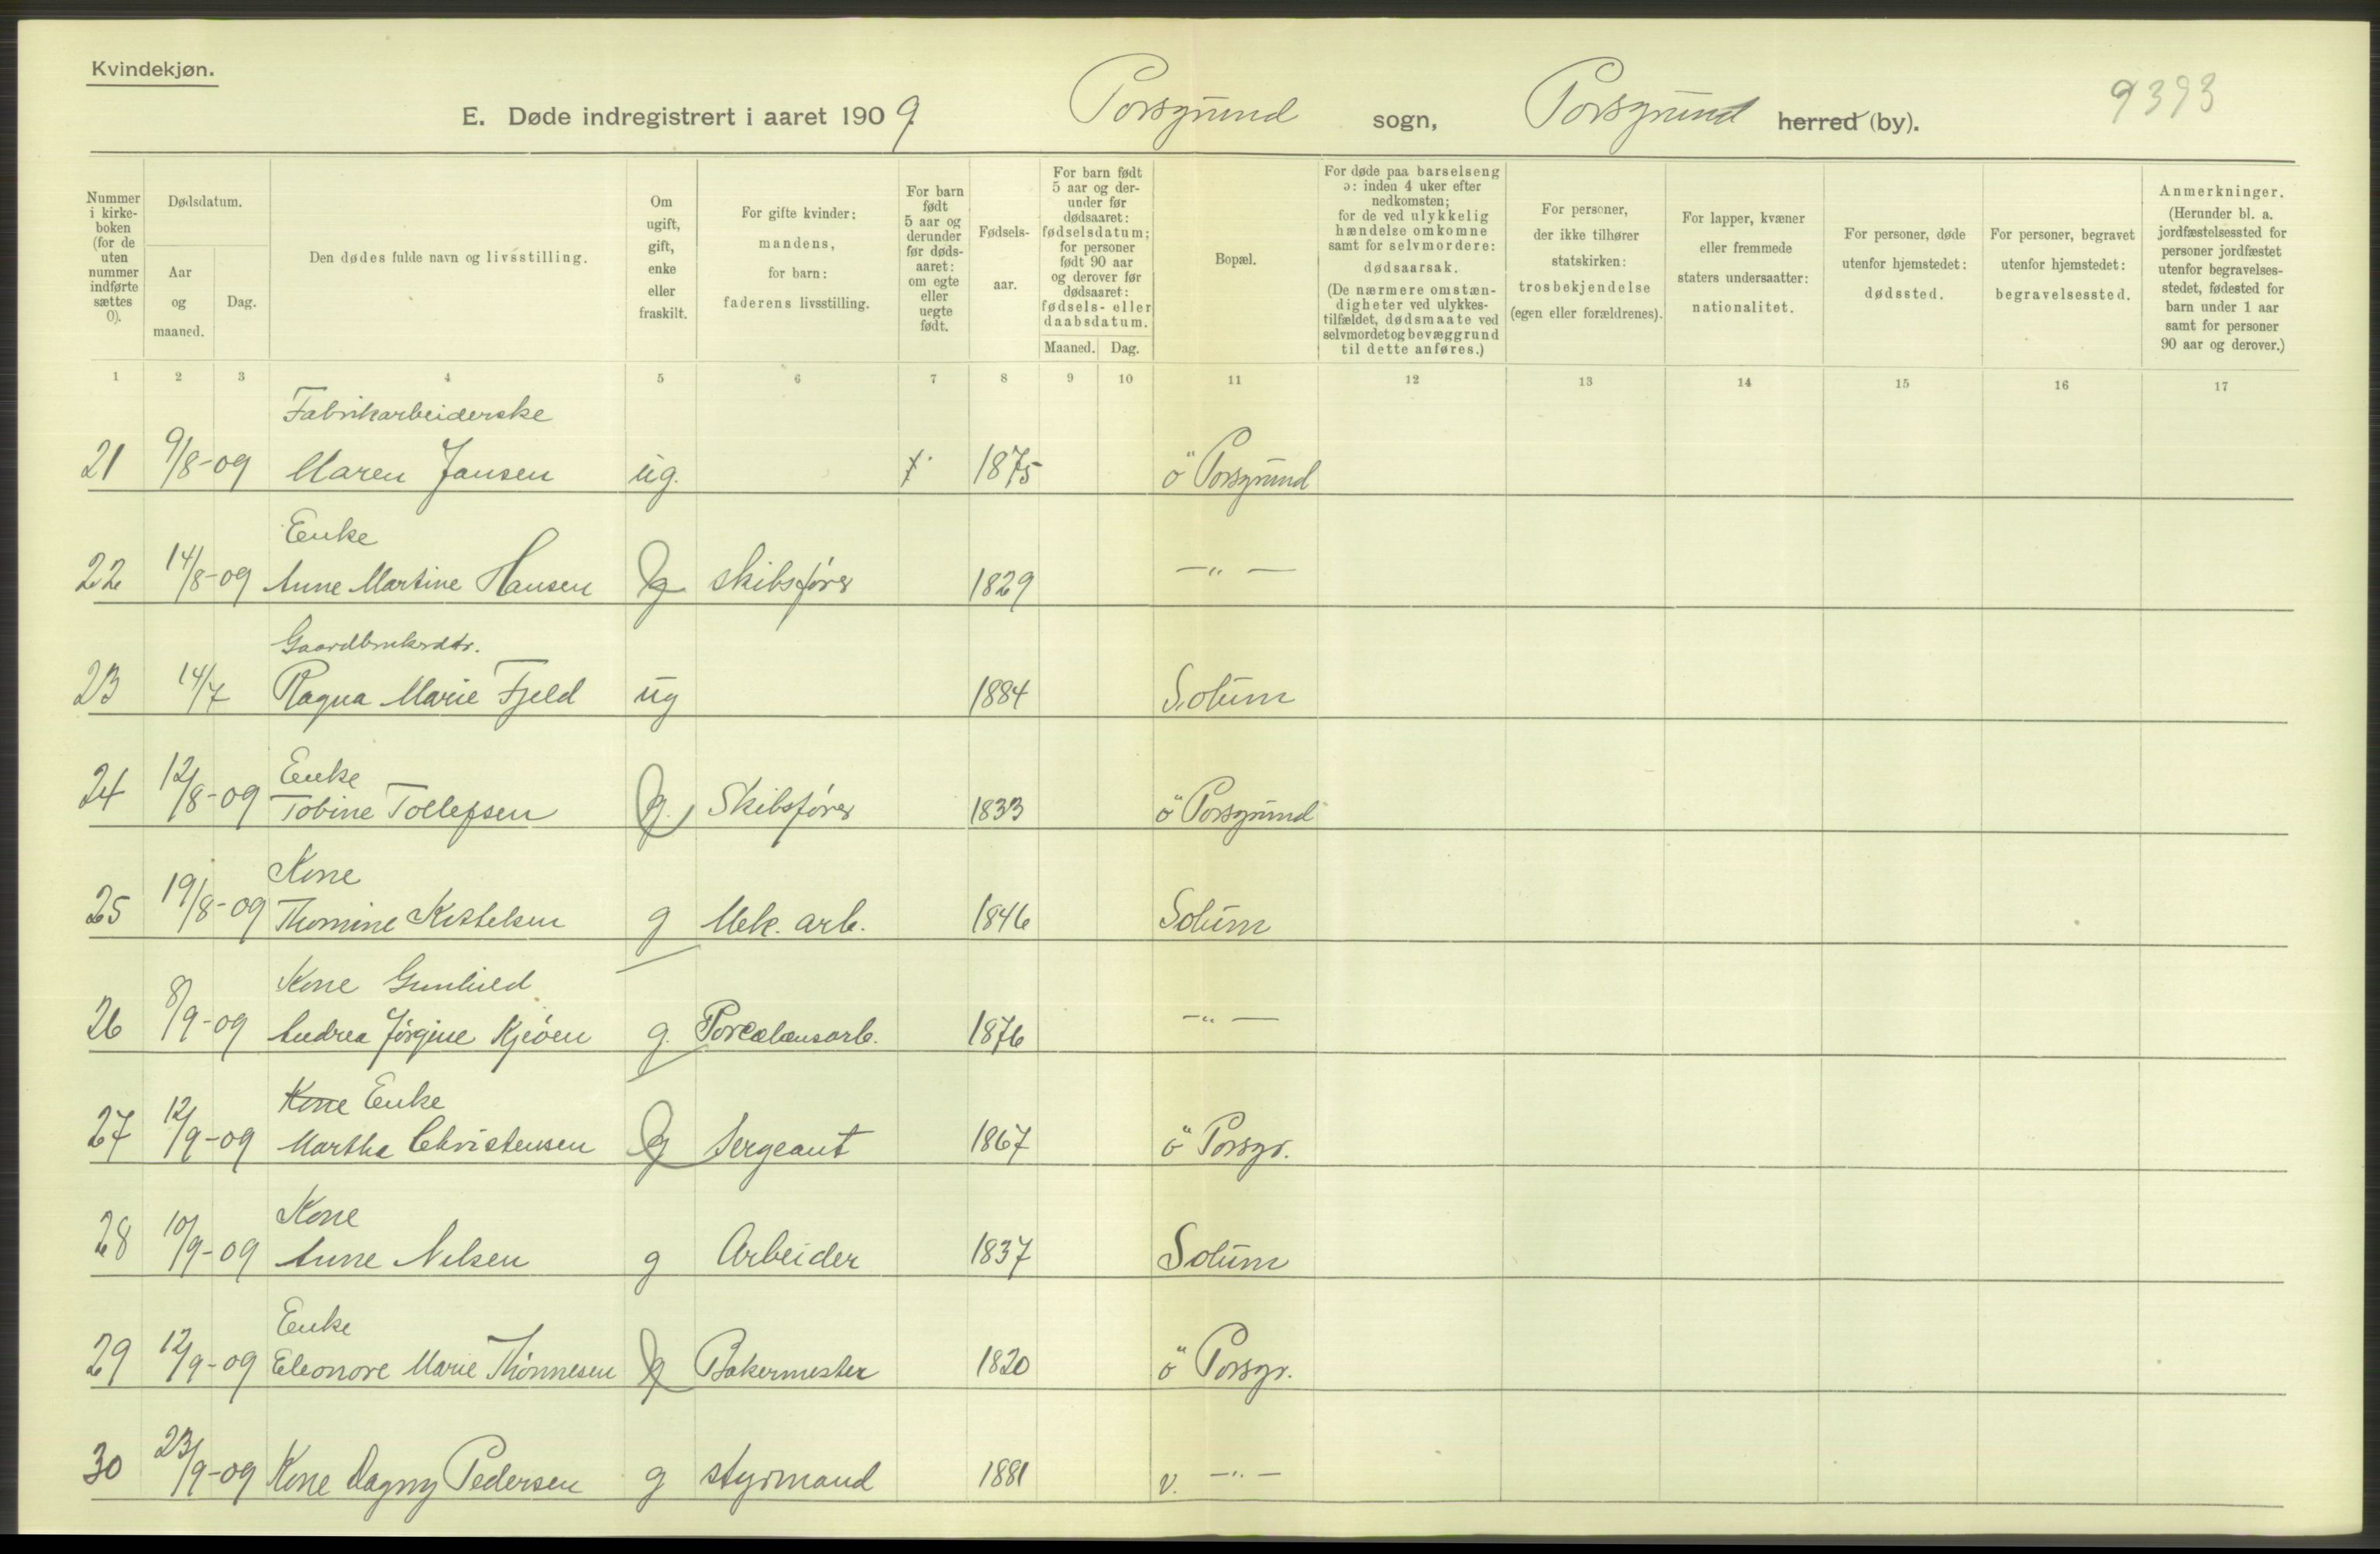 Kvindekjøn.
E. Døde indregistrert i aaret 1909. Porsgrund sogn, Porsgrund herred (by).
9393
Nummer i kirke-boken (for de uten nummer indførte sættes 0).
Dødsdatum.
Aar og maaned.
Dag.
Den dødes fulde navn og livsstilling.
Om ugift, gift, enke eller fraskilt.
For gifte kvinder: mandens, for barn: faderens livsstilling.
For barn født 5 aar og derunder før døds-aaret: om egte eller uegte født.
Fødsels-aar.
For barn født 5 aar og der-under før dødsaaret: fødselsdatum; for personer født 90 aar og derover før dødsaaret: fødsels- eller daabsdatum.
Maaned. Dag.
Bopæl.
For døde paa barselseng ɔ: inden 4 uker efter nedkomsten; for de ved ulykkelig hændelse omkomne samt for selvmordere: dødsaarsak. (De nærmere omstæn-digheter ved ulykkes-tilfældet, dødsmaate ved selvmordet og bevæggrund til dette anføres.)
For personer, der ikke tilhører statskirken: trosbekjendelse (egen eller forældrenes).
For lapper, kvæner eller fremmede staters undersaatter: nationalitet.
For personer, døde utenfor hjemstedet: dødssted.
For personer, begravet utenfor hjemstedet: begravelsessted.
Anmerkninger. (Herunder bl. a. jordfæstelsessted for personer jordfæstet utenfor begravelses-stedet, fødested for barn under 1 aar samt for personer 90 aar og derover.)
1 2 3 4 5 6 7 8 9 10 11 12 13 14 15 16 17
Fabrikarbeiderske
21 9/8-09 Maren Jansen ug. 1875 ö Porsgrund
Enke
22 14/8-09 Anne Martine Hansen g skibsfører 1829 —"—
Gaardbruksrdtr.
23 14/7 Ragna Marie Fjeld ug 1884 Solum
Enke
24 12/8-09 Tobine Tollefsen g. Skibsfører 1833 ö Porsgrund
Kone
25 19/8-09 Thomine Kittelsen g Mek. arb. 1846 Solum
Kone Gunhild
26 8/9-09 Andrea Jørgine Kjeöen g. Porcelænsarb. 1876 —"—
Kone Enke
27 12/9-09 Martha Christensen g Sergeant 1867 ö Porsgr.
Kone
28 10/9-09 Anne Nilsen g Arbeider 1837 Solum
Enke
29 12/9-09 Eleonore Marie Thönnesen g Bakermester 1820 ö Porsgr.
30 23/9-09 Kone Dagny Pedersen g styrmand 1881 v. —"—